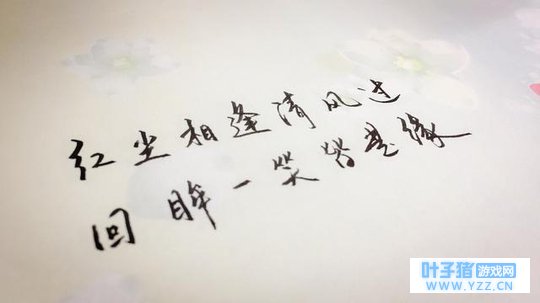 红尘相逢清风过
回眸一笑皆是缘
叶子猪游戏网
WWW.YZZ.CN